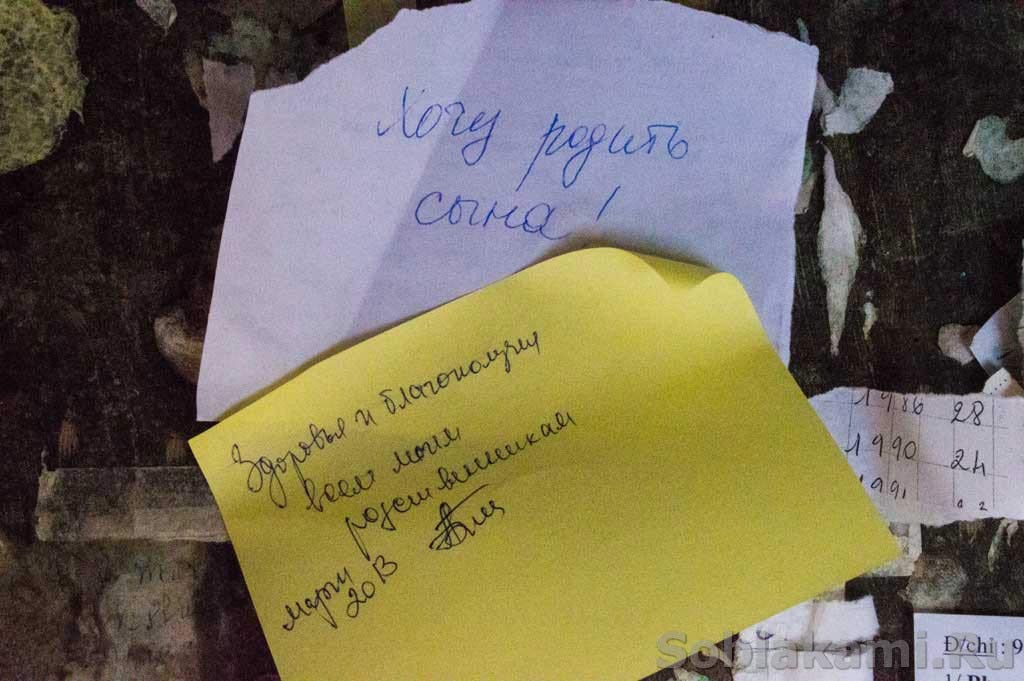 Хочу родить
сына!
Здоровья и благополучия
всем моим
родственникам
март
2013
1986 28
1990 24
1991
Đ/chỉ : 9
Sobiakami.Ru